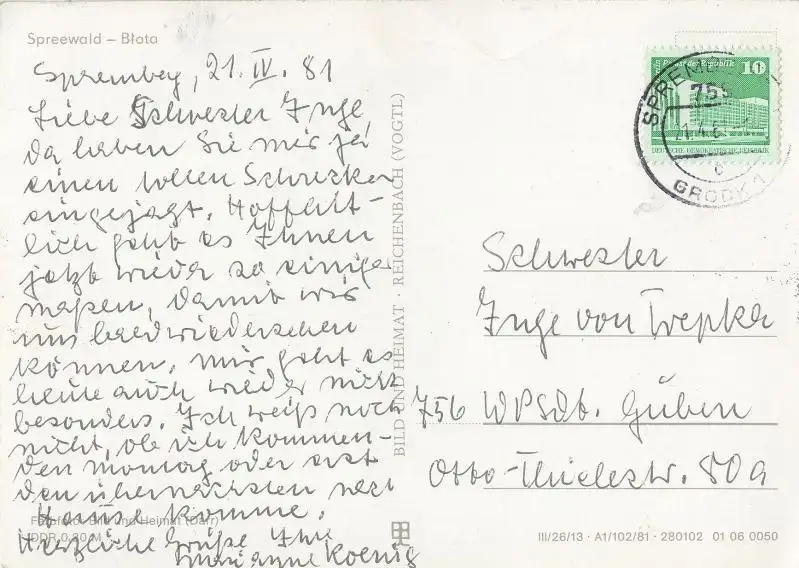 Spreewald – Błota
Spremberg, 21. IV. 81
Liebe Schwester Inge,
da haben Sie mir ja
einen tollen Schrecken
eingejagt. Hoffent-
lich geht es Ihnen
jetzt wieder so einiger
maßen, damit wir
uns bald wiedersehen
können. Mir geht es
heute auch wieder nicht
besonders. Ich weiß noch
nicht, ob ich kommen-
den Montag oder erst
den übernächsten nach
Hause komme.
Herzliche Grüße Ihre
Marianne Koenig
Farbfoto: Bild und Heimat (Darr)
DDR 0,20 M
BILD UND HEIMAT · REICHENBACH (VOGTL)
Palast der Republik 10
DEUTSCHE DEMOKRATISCHE REPUBLIK
SPREMBERG
GRODK 1
Schwester
Inge von Trepka
756 WPSdt. Guben
Otto-Thielestr. 80a
III/26/13 · A1/102/81 · 280102 01 06 0050